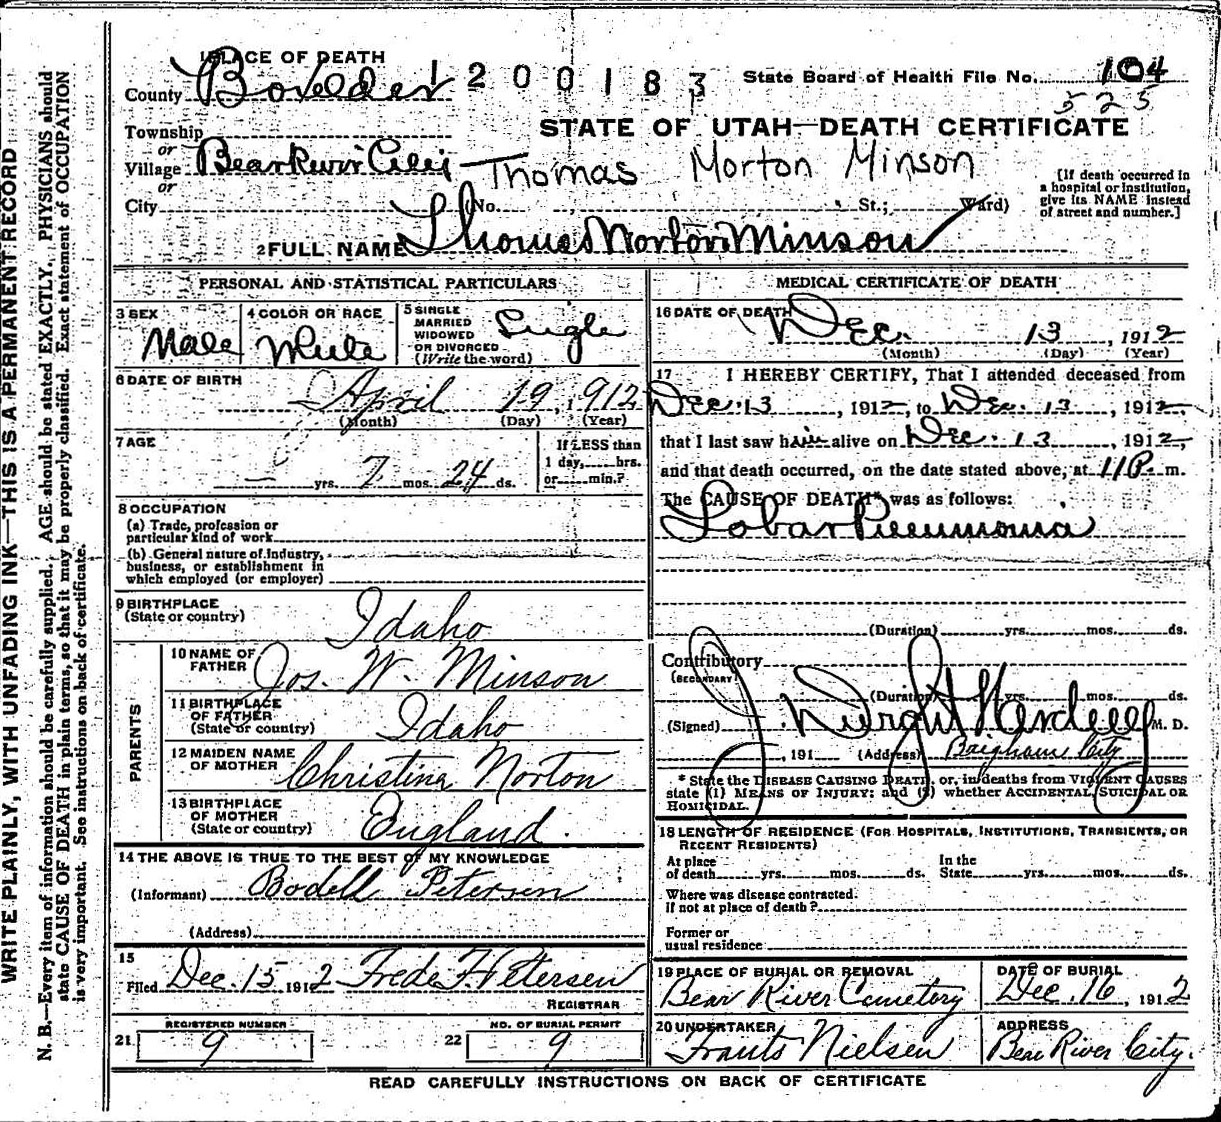 1 PLACE OF DEATH
County Boxelder
1200183
State Board of Health File No. 104
525
STATE OF UTAH—DEATH CERTIFICATE
Township
or
Village Bear River City
or
City
Thomas Morton Minson
(No. St.; Ward)
[If death occurred in
a hospital or institution,
give its NAME instead
of street and number.]
2 FULL NAME Thomas Norton Minson
PERSONAL AND STATISTICAL PARTICULARS
3 SEX
Male
4 COLOR OR RACE
White
5 SINGLE
MARRIED
WIDOWED
OR DIVORCED
(Write the word)
Single
6 DATE OF BIRTH
April 19, 1912
(Month) (Day) (Year)
7 AGE
— yrs. 7 mos. 24 ds.
If LESS than
1 day, hrs.
or min.?
8 OCCUPATION
(a) Trade, profession or
particular kind of work
(b) General nature of industry,
business, or establishment in
which employed (or employer)
9 BIRTHPLACE
(State or country)
Idaho
PARENTS
10 NAME OF
FATHER
Jos. W. Minson
11 BIRTHPLACE
OF FATHER
(State or country)
Idaho
12 MAIDEN NAME
OF MOTHER
Christina Norton
13 BIRTHPLACE
OF MOTHER
(State or country)
England.
14 THE ABOVE IS TRUE TO THE BEST OF MY KNOWLEDGE
(Informant) Bodell Petersen
(Address)
15
Filed Dec. 15 1912 Frede F. Petersen
REGISTRAR
REGISTERED NUMBER
21 9
NO. OF BURIAL PERMIT
22 9
MEDICAL CERTIFICATE OF DEATH
16 DATE OF DEATH
Dec. 13, 1912
(Month) (Day) (Year)
17 I HEREBY CERTIFY, That I attended deceased from
Dec. 13, 1912, to Dec. 13, 1912,
that I last saw him alive on Dec. 13, 1912,
and that death occurred, on the date stated above, at 11 P. m.
The CAUSE OF DEATH* was as follows:
Lobar Pneumonia
(Duration) yrs. mos. ds.
Contributory
(SECONDARY)
(Duration) yrs. mos. ds.
(Signed) J Dwight Hardell M. D.
, 191 (Address) Brigham City
* State the DISEASE CAUSING DEATH, or, in deaths from VIOLENT CAUSES
state (1) MEANS OF INJURY; and (2) whether ACCIDENTAL, SUICIDAL OR
HOMICIDAL.
18 LENGTH OF RESIDENCE (FOR HOSPITALS, INSTITUTIONS, TRANSIENTS, OR
RECENT RESIDENTS)
At place
of death yrs. mos. ds.
In the
State yrs. mos. ds.
Where was disease contracted.
if not at place of death?
Former or
usual residence
19 PLACE OF BURIAL OR REMOVAL
Bear River Cemetery
DATE OF BURIAL
Dec. 16, 1912
20 UNDERTAKER
Frants Nielsen
ADDRESS
Bear River City.
READ CAREFULLY INSTRUCTIONS ON BACK OF CERTIFICATE
WRITE PLAINLY, WITH UNFADING INK—THIS IS A PERMANENT RECORD
N. B.—Every item of information should be carefully supplied. AGE should be stated EXACTLY. PHYSICIANS should
state CAUSE OF DEATH in plain terms, so that it may be properly classified. Exact statement of OCCUPATION
is very important. See instructions on back of certificate.